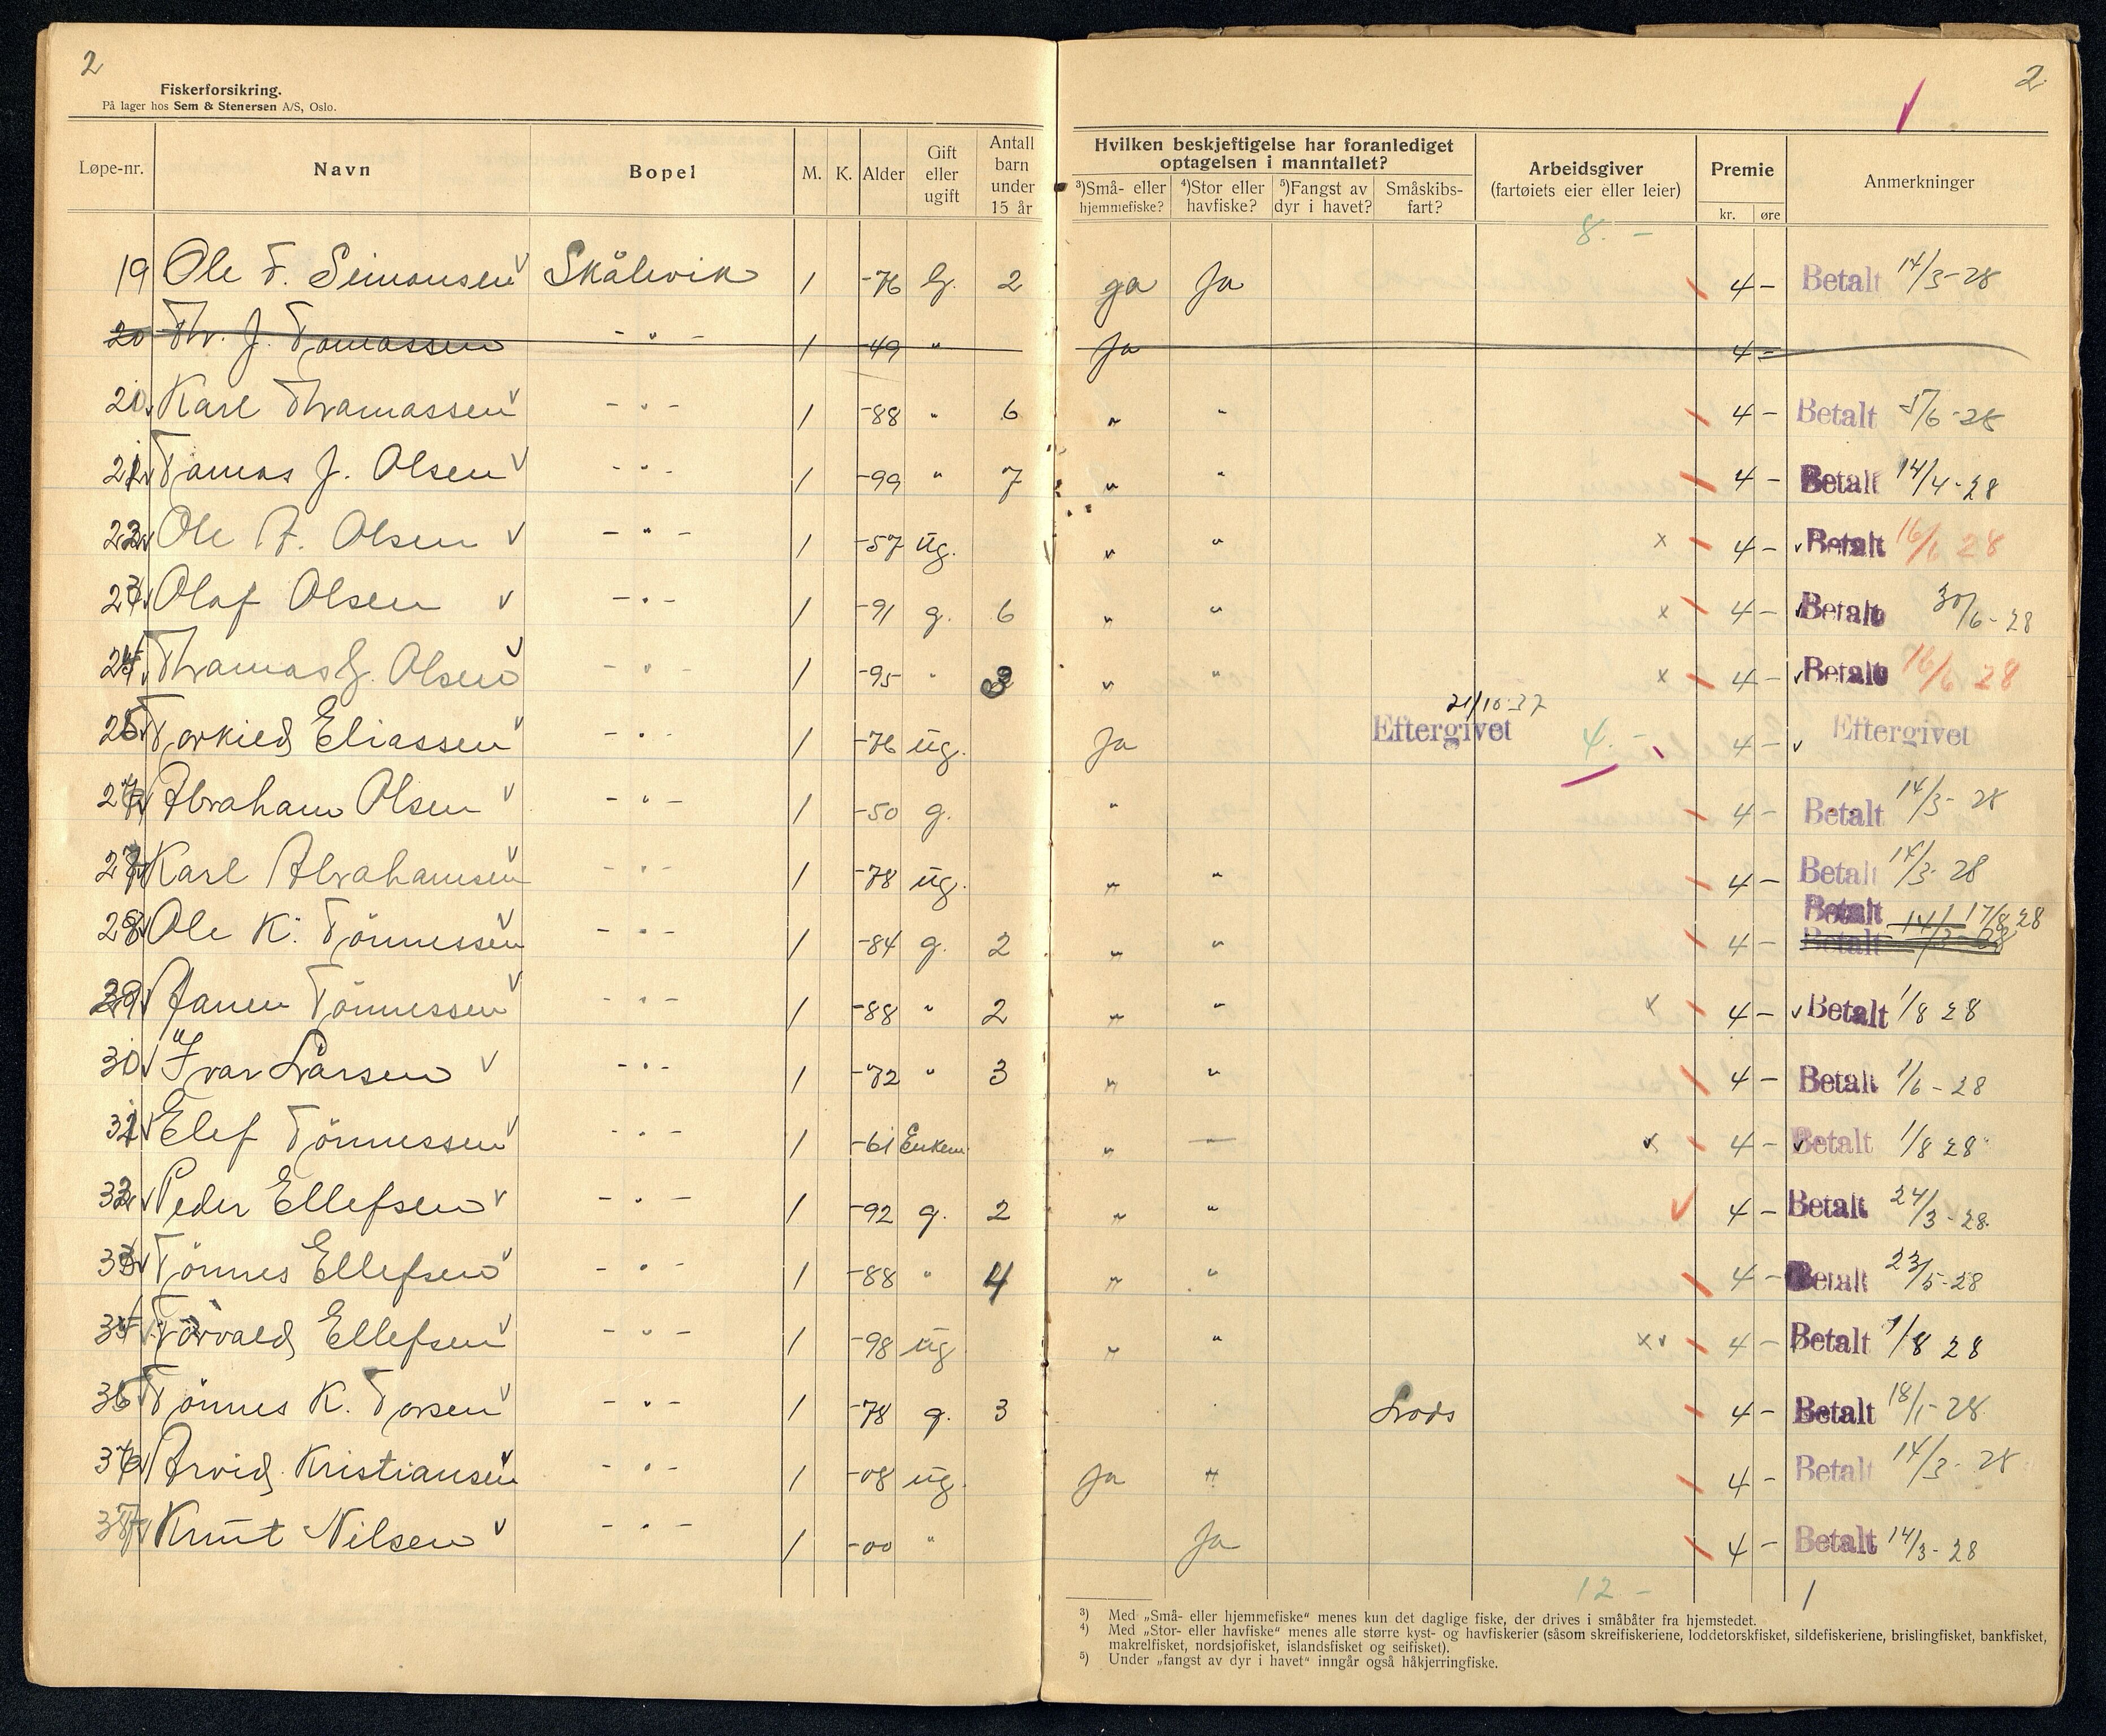 2
2
Fiskerforsikring.
På lager hos Sem & Stenersen A/S, Oslo.
Løpe-nr. Navn Bopel M. K. Alder Gift eller ugift Antall barn under 15 år Hvilken beskjeftigelse har foranlediget optagelsen i manntallet? ³)Små- eller hjemmefiske? ⁴)Stor eller havfiske? ⁵)Fangst av dyr i havet? Småskibs-fart? Arbeidsgiver (fartøiets eier eller leier) Premie kr. øre Anmerkninger
8. -
19 Ole F. Simonsen Skålevik 1 -76 G. 2 ja Ja 4 - Betalt 14/3-28
20 Th. J. Tomassen - " - 1 -49 " Ja 4 -
20 Karl Thomassen - " - 1 -88 " 6 " " 4 - Betalt 5/6-28
21 Tomas J. Olsen - " - 1 -99 " 7 " " 4 - Betalt 14/4-28
22 Ole A. Olsen - " - 1 -57 ug. " " x 4 - Betalt 16/6 28
23 Olaf Olsen - " - 1 -91 g. 6 " " x 4 - Betalt 30/6-28
24 Thomas G. Olsen - " - 1 -95 " 3 " " x 4 - Betalt 16/6 28
21/10-37
25 Torkild Eliassen - " - 1 -76 ug. Ja Eftergivet 4. - 4 - Eftergivet
26 Abraham Olsen - " - 1 -50 g. " 4 - Betalt 14/3-28
27 Karl Abrahamsen - " - 1 -78 ug. " " 4 - Betalt 14/3-28
Betalt 17/8 28
28 Ole K. Tönnessen - " - 1 -84 g. 2 " " 4 - Betalt 14/3-28
29 Janen Tönnessen - " - 1 -88 " 2 " " x 4 - Betalt 1/8 28
30 Ivar Larsen - " - 1 -72 " 3 " " 4 - Betalt 1/6-28
31 Elef Tönnessen - " - 1 -61 Enkem. " — x 4 - Betalt 1/8 28
32 Peder Ellefsen - " - 1 -92 g. 2 " " 4 - Betalt 24/3-28.
33 Tönnes Ellefsen - " - 1 -88 " 4 " " 4 - Betalt 23/5-28
34 Torvald Ellefsen - " - 1 -98 ug " " x 4 - Betalt 1/8 28
35 Tönnes K. Torsen - " - 1 -78 g. 3 Lods 4 - Betalt 18/1-28
36 Arvid Kristiansen - " - 1 -08 ug. Ja " 4 - Betalt 14/3-28
37 Knut Nilsen - " - 1 -00 " Ja 4 - Betalt 14/3-28
12 -
³) Med „Små- eller hjemmefiske“ menes kun det daglige fiske, der drives i småbåter fra hjemstedet.
⁴) Med „Stor- eller havfiske“ menes alle større kyst- og havfiskerier (såsom skreifiskeriene, loddetorskfisket, sildefiskeriene, brislingfisket, bankfisket,
makrelfisket, nordsjøfisket, islandsfisket og seifisket).
⁵) Under „fangst av dyr i havet“ inngår også håkjerringfiske.